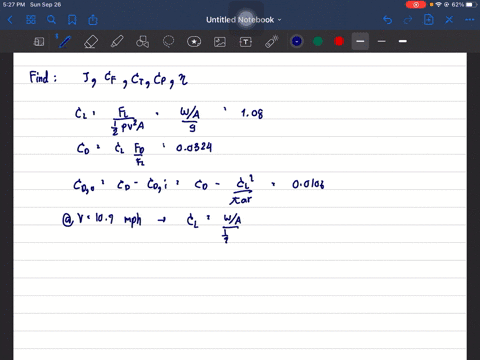 5:27 PM Sun Sep 26
62%
Untitled Notebook
Find: J, CF, CT, CP, η
CL = FL / ½ ρV²A = W/A / q = 1.08
CD = CL FD/FL = 0.0324
CD,o = CD - CD,i = CD - CL² / πar = 0.0106
@ V = 10.9 mph → CL = W/A / ½